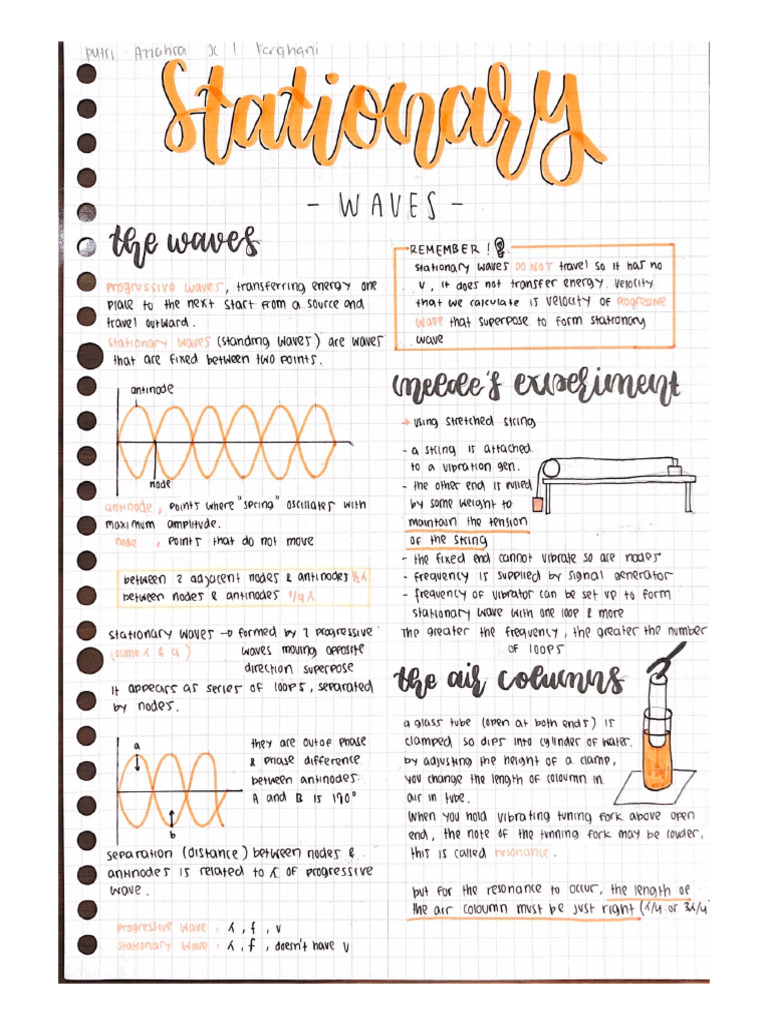 Putri Azzahra XI Farghani
Stationary
- WAVES -
the waves
Progressive waves, transferring energy one
place to the next start from a source and
travel outward.
stationary waves (standing waves) are waves
that are fixed between two points.
antinode
node
antinode, points where "spring" oscillates with
maximum amplitude.
node, points that do not move
between 2 adjacent nodes & antinodes ½ λ
between nodes & antinodes 1/4 λ
stationary waves → formed by 2 progressive
(same λ & a) waves moving opposite
direction superpose
It appears as series of loops, separated
by nodes.
a
b
they are out of phase
& phase difference
between antinodes.
A and B is 190°
separation (distance) between nodes &
antinodes is related to λ of progressive
wave.
progressive wave : λ, f, v
stationary wave : λ, f, doesn't have v
REMEMBER!
stationary waves DO NOT travel so it has no
v, it does not transfer energy. velocity
that we calculate is velocity of progresive
wave that superpose to form stationary
wave
melde's experiment
→ using stretched string
- a string is attached
to a vibration gen.
- the other end is pulled
by some weight to
maintain the tension
of the string
- the fixed end cannot vibrate so are nodes
- frequency is supplied by signal generator
- frequency of vibrator can be set up to form
stationary wave with one loop & more
the greater the frequency, the greater the number
of loops
the air columns
a glass tube (open at both ends) is
clamped so dips into cylinder of water.
by adjusting the height of a clamp,
you change the length of coloumn in
air in tube.
When you hold vibrating tuning fork above open
end, the note of the tunning fork may be louder,
this is called resonance.
but for the resonance to occur, the length of
the air coloumn must be just right (λ/4 or 3λ/4